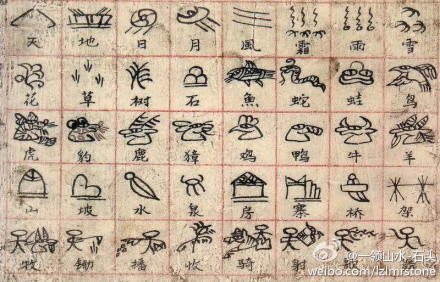 天 地 日 月 風 霜 雨 雪
花 草 树 石 魚 蛇 蛙 鸟
虎 豹 鹿 獐 鸡 鸭 牛 羊
山 坡 水 泉 房 寨 桥 架
牧 锄 播 收 骑 射
@一领山水-石头
weibo.com/lzlmrstone